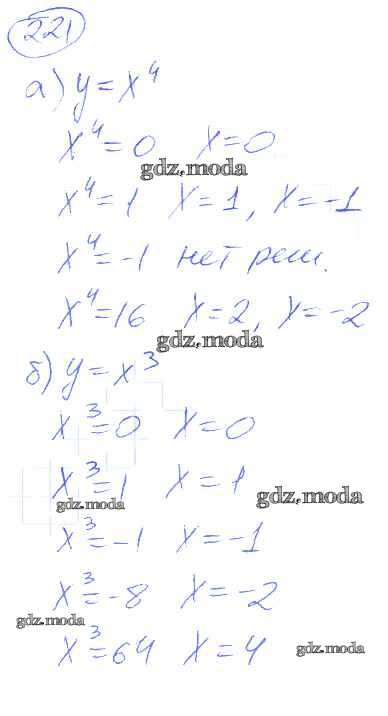 221
а) y = x⁴
x⁴ = 0 x = 0
gdz.moda
x⁴ = 1 x = 1, x = -1
x⁴ = -1 нет реш.
x⁴ = 16 x = 2, x = -2
gdz.moda
б) y = x³
x³ = 0 x = 0
x³ = 1 x = 1
gdz.moda
gdz.moda
x³ = -1 x = -1
x³ = -8 x = -2
gdz.moda
x³ = 64 x = 4
gdz.moda